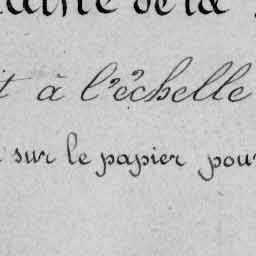 de la
à l'échelle
sur le papier pour